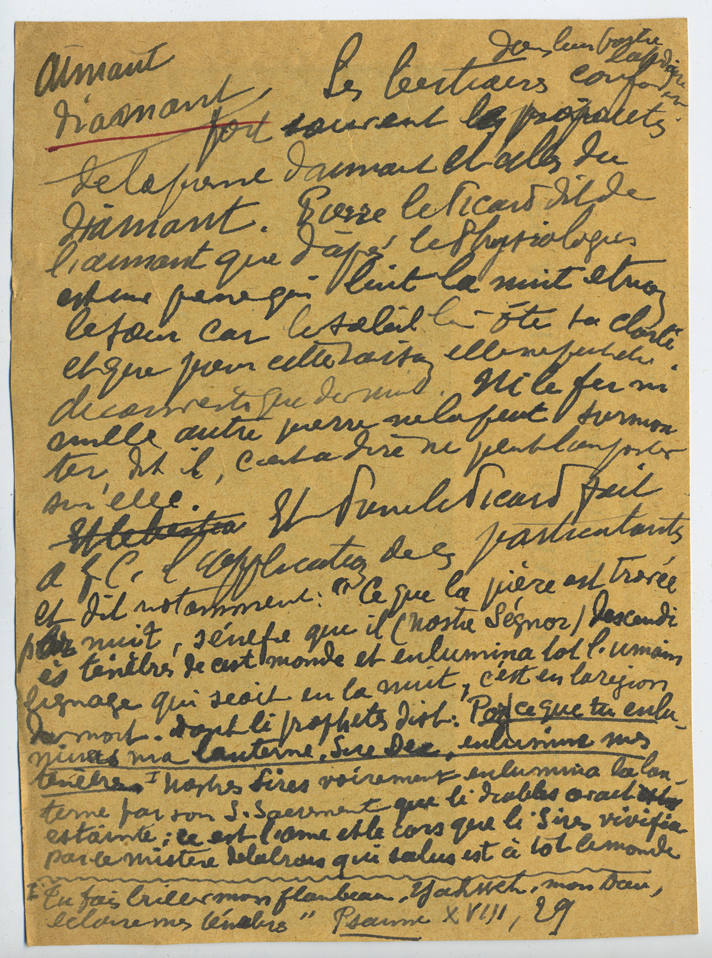 Aimant
Diamant.
dans leur partie
Les bestiaires confondent
fort souvent les propriétés
de la pierre d'aimant et celles du
Diamant. Pierre le Picard dit de
l'aimant que d'après le Physiologus
est une pierre qui luit la nuit et non
le jour car le soleil lui ôte sa clarté
et que pour cette raison elle ne peut être
découverte que de nuit. Ni le fer ni
nulle autre pierre ne la peut surmon
ter, dit-il, c'est à dire ne peut l'emporter
sur elle.
Et Pierre le Picard fait
à J.C. l'application de ces particularités
et dit notamment : "Ce que la pière est trovée
par nuit, sénéfie que il (nostre Ségnor) descendi
ès ténèbres de cest monde et enlumina tot l'umain
lignage qui seoit en la nuit, c'est en la région
de mort. Dont li prophètes dist : Por ce que tu enlu-
minas ma lanterne, Sire Dex, enlumine mes
ténèbres. I Nostre Sires voirement enlumina la lan-
terne par son S. Sacrement que li diables avait
estainte ; ce est l'ame et le cors que li Sires vivifia
par le mistère de la crois qui salus est à tot le monde
I "Tu fais briller mon flambeau, Yahweh, mon Dieu,
éclaire mes ténèbres" Psaume XVIII, 29